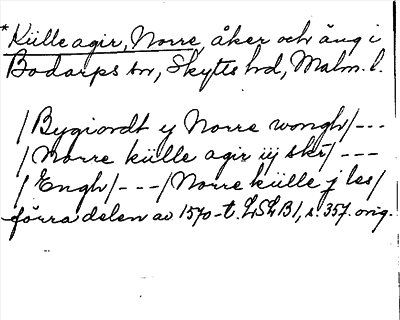 *Külle agir, Norre, åker och äng i
Bodarps sn, Skytts hd, Malm. l.
/Bygiordt y Norre wongh/---
/Norre külle agir iij skr/---
/Engh/---/Norre külle j les/
förra delen av 1570-t. LSLB1, s. 357. orig.